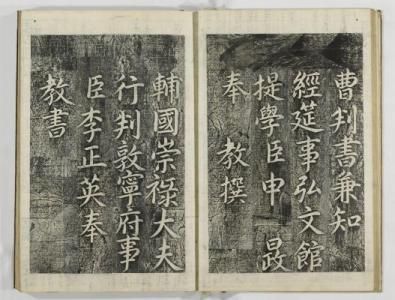 曹判書兼知
經筵事弘文館
提學臣申 晸
奉 教撰
輔國崇祿大夫
行判敦寧府事
臣李正英奉
教書